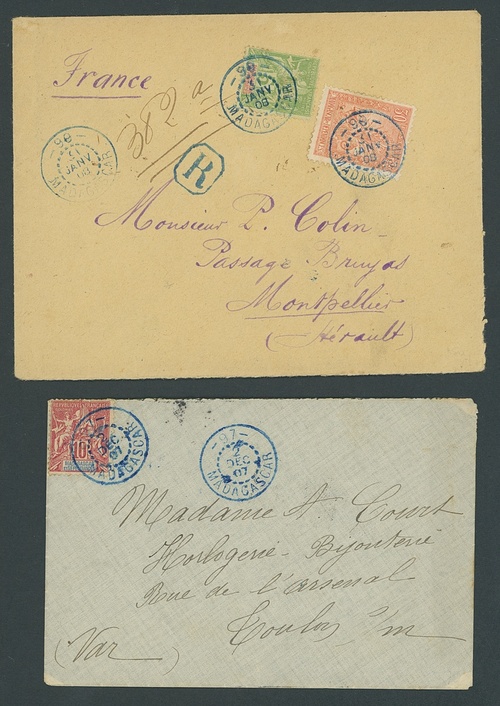 France
382
-98-
31
JANV
08
MADAGASCAR
-98-
31
JANV
08
MADAGASCAR
-98-
31
JANV
08
MADAGASCAR
R
Monsieur P. Colin
Passage Bruyas
Montpellier
(Hérault)
10
2
DEC
07
MADAGASCAR
-97-
2
DEC
07
MADAGASCAR
Madame A. Court
Horlogerie - Bijouterie
Rue de l'arsenal
Toulon s/m
(Var)